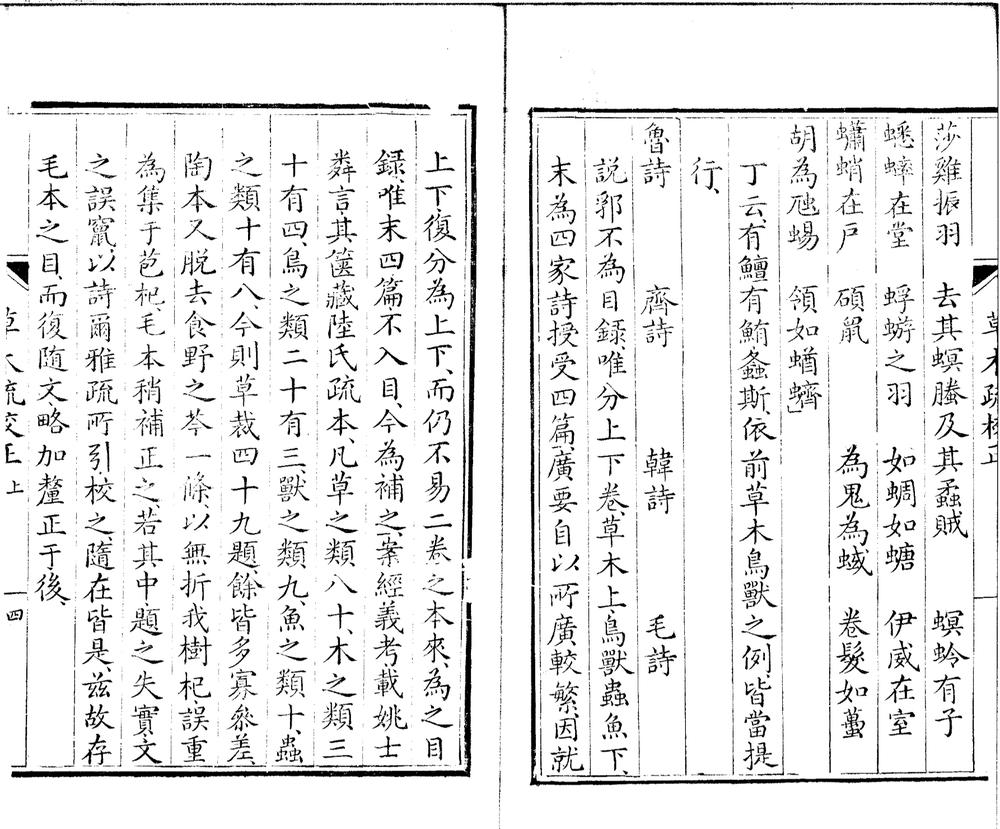 草木疏校正
莎雞振羽　去其螟螣及其蟊賊　螟蛉有子
蟋蟀在堂　蜉蝣之羽　如蜩如螗　伊威在室
蠨蛸在戶　碩鼠　為鬼為蜮　卷髮如蠆
胡為虺蜴　領如蝤蠐」
丁云、有鱣有鮪螽斯、依前草木鳥獸之例、皆當提
行、
魯詩　齊詩　韓詩　毛詩
説郛不為目録、唯分上下卷、草木上、鳥獸蟲魚下、
末為四家詩授受四篇、廣要自以所廣較繁、因就
上下復分為上下、而仍不易二卷之本來、為之目
録、唯末四篇不入目、今為補之、案經義考、載姚士
粦言、其篋藏陸氏疏本、凡草之類八十、木之類三
十有四、鳥之類二十有三、獸之類九、魚之類十、蟲
之類十有八、今則草裁四十九題、餘皆多寡參差、
陶本又脫去食野之芩一條、以無折我樹杞誤重
為集于苞杞、毛本稍補正之、若其中題之失實文
之誤竄、以詩爾雅疏所引、校之、隨在皆是、兹故存
毛本之目、而復隨文略加釐正于後、
草木疏校正　上　一四